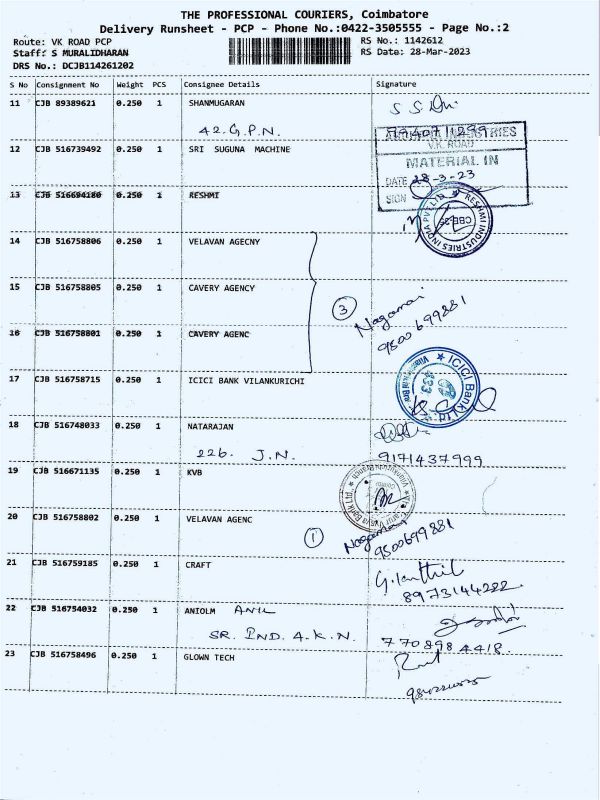 THE PROFESSIONAL COURIERS, Coimbatore
Delivery Runsheet - PCP - Phone No.:0422-3505555 - Page No.:2
Route: VK ROAD PCP RS No.: 1142612
Staff: S MURALIDHARAN RS Date: 28-Mar-2023
DRS No.: DCJB114261202
S No Consignment No Weight PCS Consignee Details Signature
11 CJB 89389621 0.250 1 SHANMUGARAN
42.G.P.N.
12 CJB 516739492 0.250 1 SRI SUGUNA MACHINE
INDUSTRIES
V.K. ROAD
MATERIAL IN
DATE 28-3-23
SIGN
13 CJB 516694180 0.250 1 RESHMI
RESHMI INDUSTRIES INDIA PVT LTD
14 CJB 516758806 0.250 1 VELAVAN AGECNY
15 CJB 516758805 0.250 1 CAVERY AGENCY
3 Nagamai
9500699881
16 CJB 516758801 0.250 1 CAVERY AGENC
17 CJB 516758715 0.250 1 ICICI BANK VILANKURICHI
ICICI Bank Ltd
18 CJB 516748033 0.250 1 NATARAJAN
226. J.N. 9171437999
19 CJB 516671135 0.250 1 KVB
20 CJB 516758802 0.250 1 VELAVAN AGENC
1 9500699881
21 CJB 516759185 0.250 1 CRAFT
8973144222
22 CJB 516754032 0.250 1 ANIOLM ANIL
SR. IND. A.K.N. 770898 4418
23 CJB 516758496 0.250 1 GLOWN TECH